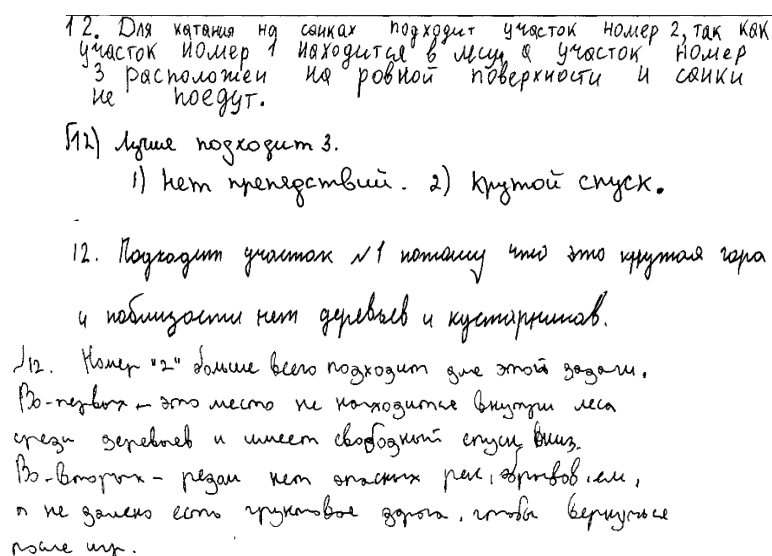 12. Для катания на санках подходит участок номер 2, так как
участок номер 1 находится в лесу, а участок номер
3 расположен на ровной поверхности и санки
не поедут.
12) Лучше подходит 3.
1) Нет препядствий. 2) Крутой спуск.
12. Подходит участок №1 потому что это крутая гора
и поблизости нет деревьев и кустарников.
№12. Номер "2" больше всего подходит для этой задачи.
Во-первых – это место не находится внутри леса
среди деревьев и имеет свободный спуск вниз.
Во-вторых – рядом нет опасных рек, обрывов,
а не далеко есть грунтовое дорога, чтобы вернуться
после игр.